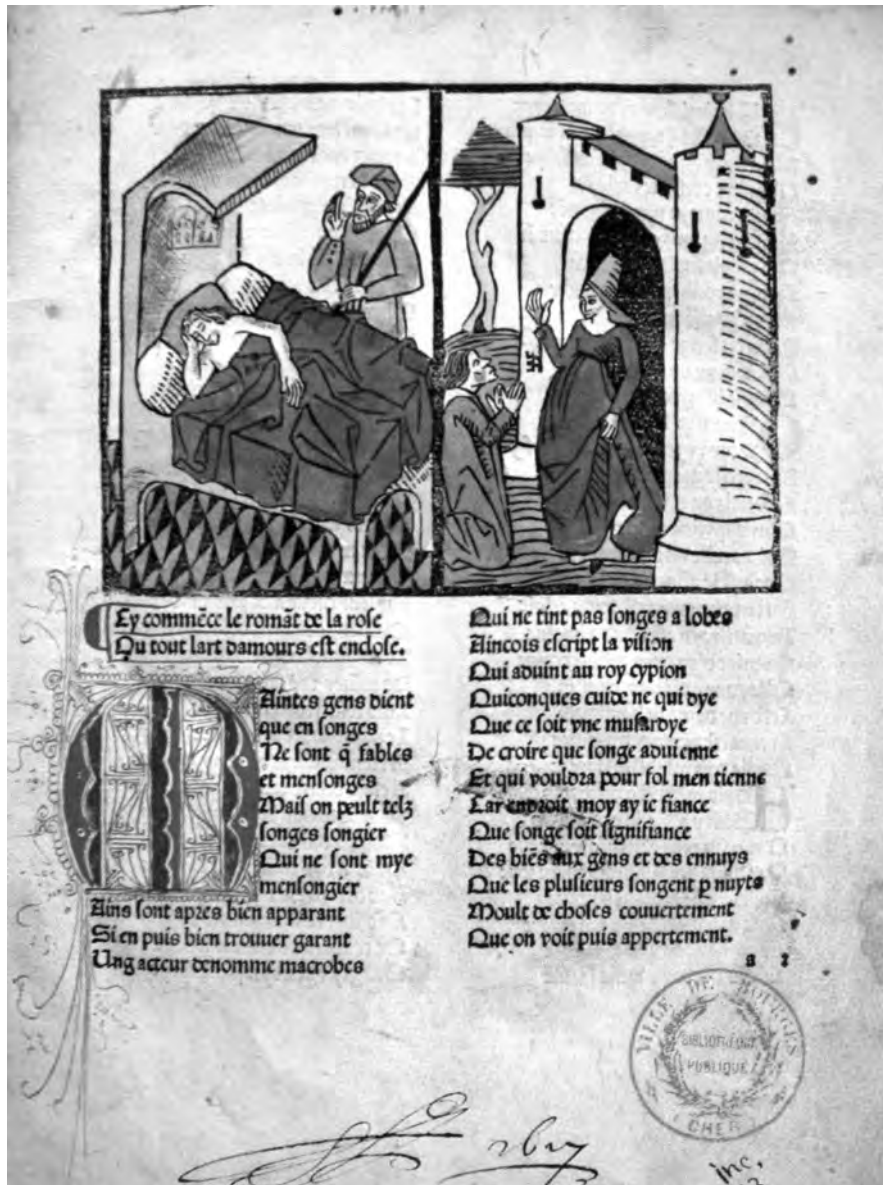 Cy commẽce le romãt de la rose
Ou tout lart damours est enclose.
Maintes gens dient
que en songes
Ne sont q̃ fables
et mensonges
Mais on peult telz
songes songier
Qui ne sont mye
mensongier
Ains sont apres bien apparant
Si en puis bien trouuer garant
Ung acteur denomme macrobes
Qui ne tint pas songes a lobes
Aincois escript la vision
Qui aduint au roy cypion
Quiconques cuide ne qui dye
Que ce soit vne musardye
De croire que songe aduienne
Et qui vouldra pour fol men tienne
Car endroit moy ay ie fiance
Que songe soit signifiance
Des biẽs aux gens et des ennuys
Que les plusieurs songent p nuyts
Moult de choses couuertement
Que on voit puis appertement.
VILLE DE BOURGES
BIBLIOTHEQUE
PUBLIQUE
(CHER)
inc.